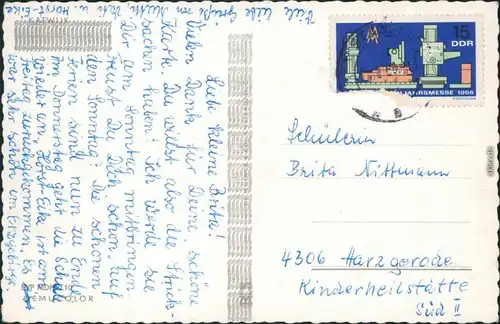 Liebe kleine Brita!
Vielen Dank für Deine schöne
Karte. Du willst also die Strick-
sachen haben? Ich werde sie
Dir am Sonntag mitbringen.
Freust Du Dich schon auf
den Sonntag? Die schönen
Ferien sind nun zu Ende
am Donnerstag geht die Schule
wieder an. Horst-Eike ist am
Freitag zurückgekommen. Es
war sehr schön im Erzgebirge.
Viele liebe Grüße von Mutti, Vati u. Horst-Eike
15
DDR
JAHRSMESSE 1966
Schülerin
Brita Kittmann
4306 Harzgerode
Kinderheilstätte
Süd II